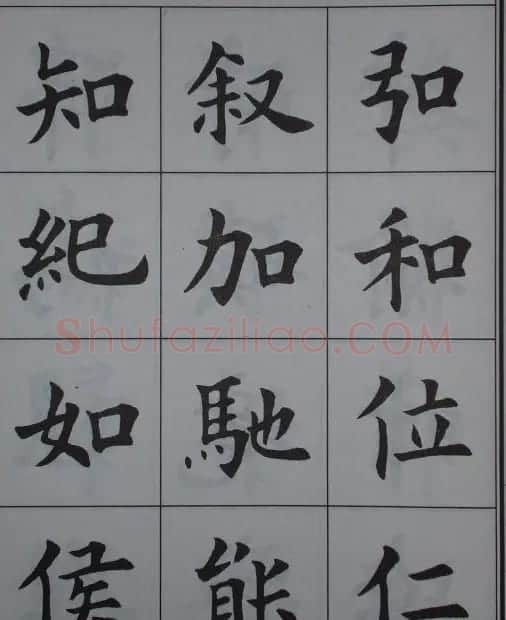 弘和位仁
叙加馳能
知紀如侯
Shufaziliao.COM